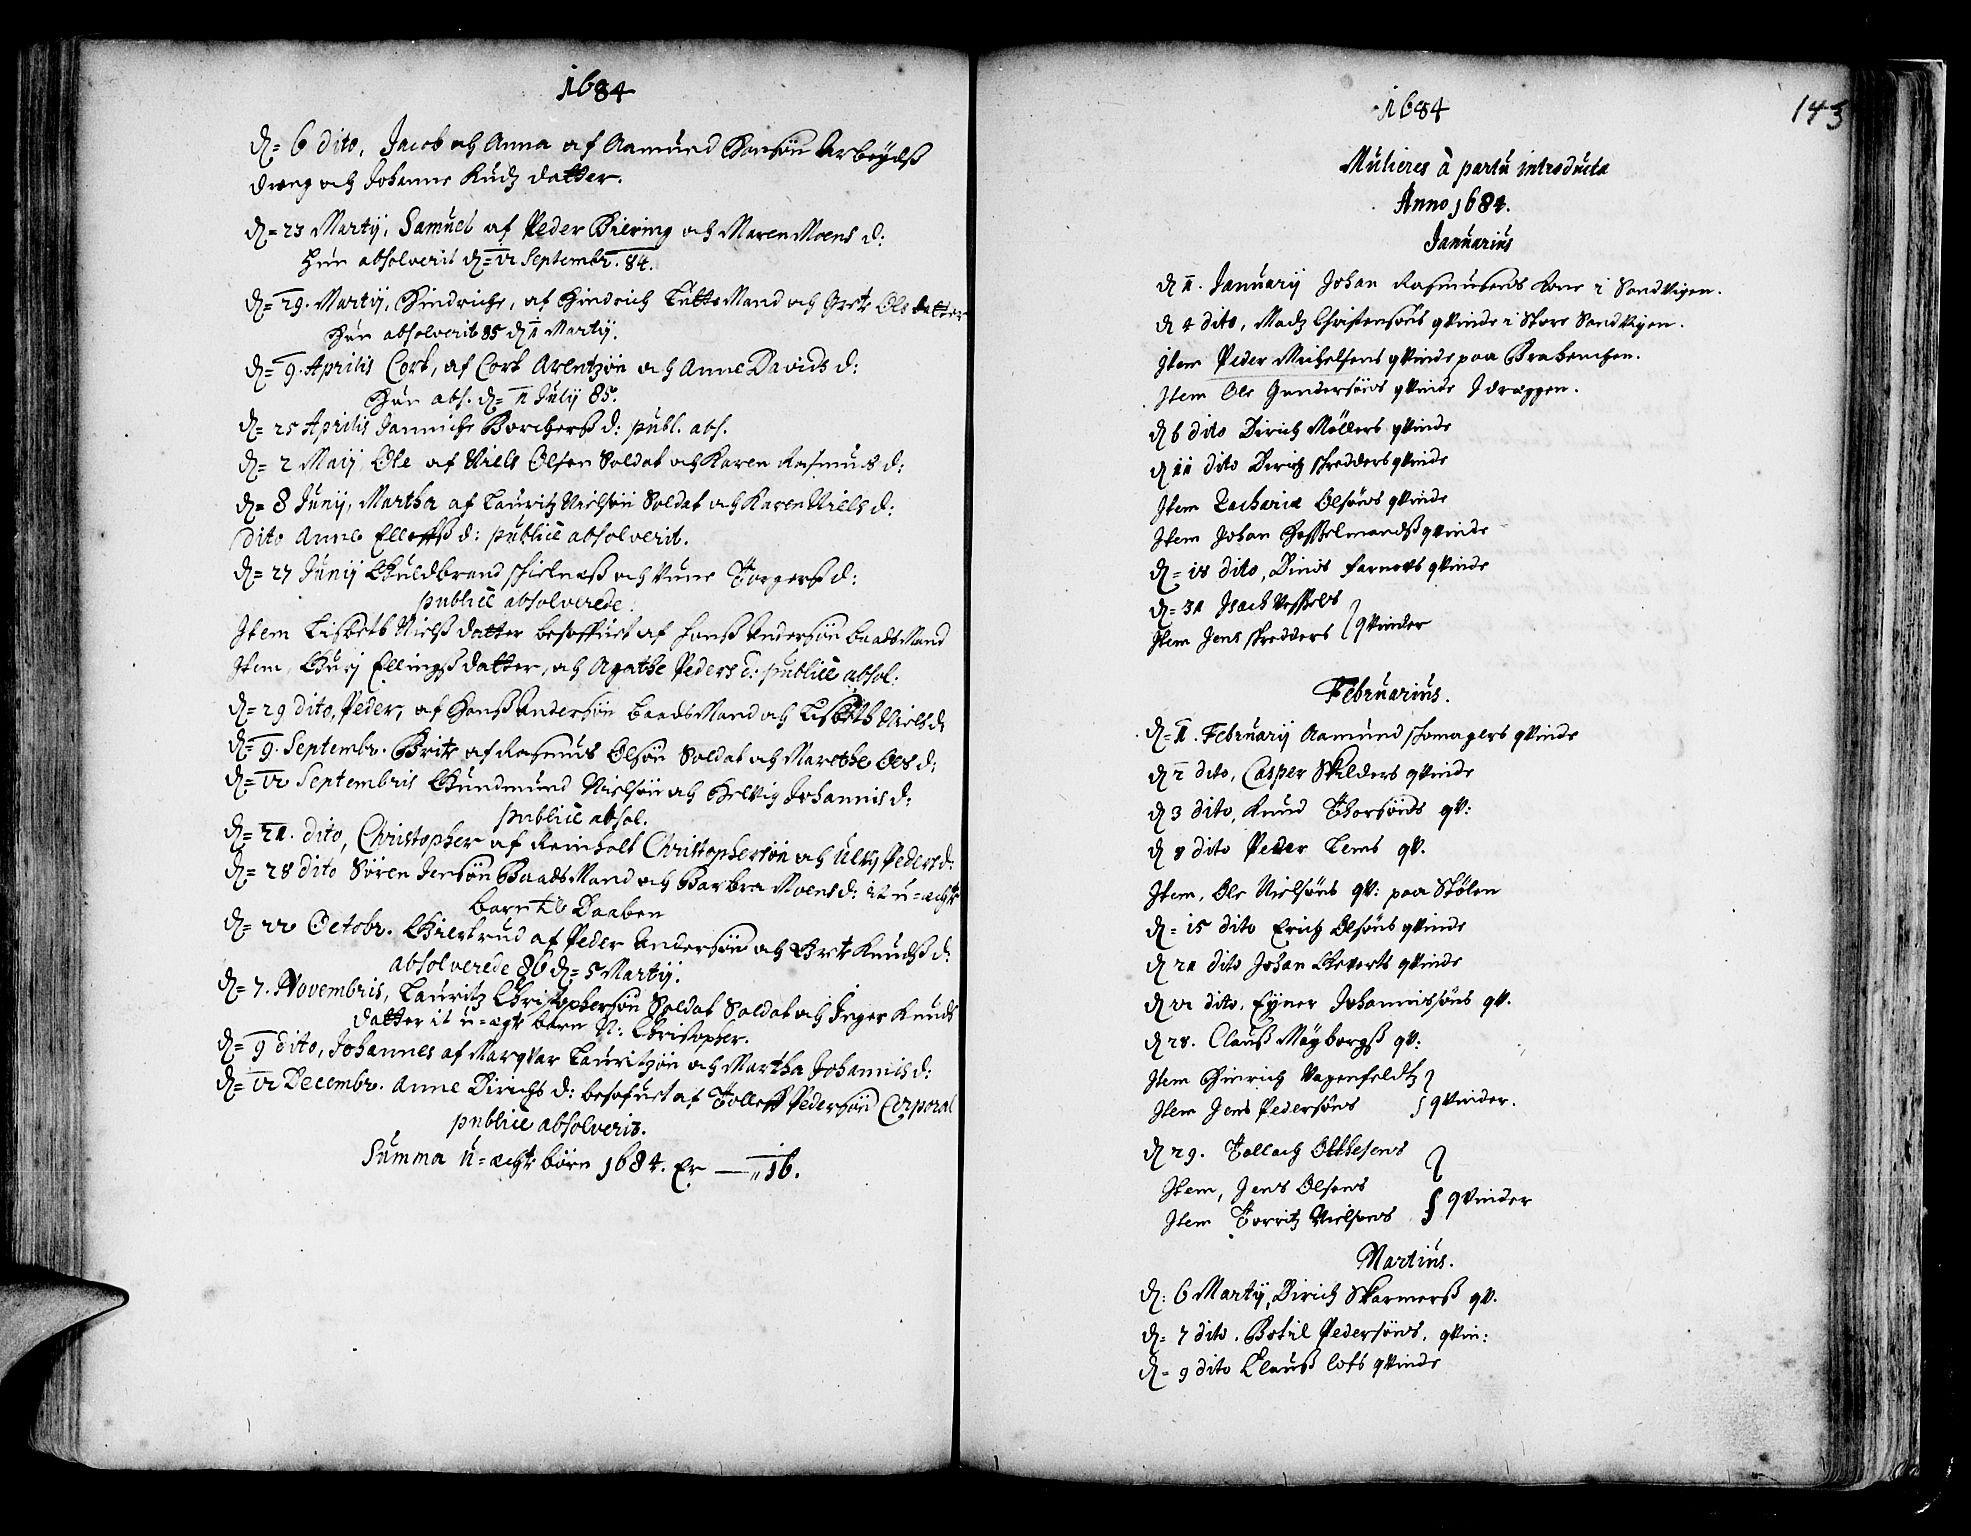 1684
D= 6 dito, Jacob och Anna af Aamund Hansøn Arbeydß
dreng och Johanne Knudz datter.
D= 23 Martij, Samuel af Peder Biering och Maren Moens d:
Hun absolverit D= 12 Septembr. 84.
D= 29. Martij, Hindrich, af Hindrich Mand och Grete Ols datter
Hun absolverit 85 D 1 Martij.
D= 9. Aprilis Cort, af Cort Arentzøn och Anne Davids d:
Hun abs. D= 11 Julij 85.
D= 25 Aprilis Jannicke Borcherß d: publ. abs.
D= 2 Maij Ole af Niels Olsen Soldat och Karen Rasmus d:
D= 8 Junij, Martha af Lauritz Nielsøn Soldat och Karen Niels d:
dito Anne Elleffß d: publicè absolverit.
D= 27 Junij Guldbrand och Torgerß d:
publicè absolverede.
Item Lisbeth Nielß datter besoffuet af Hanß Andersøn baadsMand
Item, Guri Ellingß datter, och Agathe Peders d: publicè absol:
D= 29 dito, Peder, af Hanß Andersøn baadsMand och Lisbeth Niels d:
D= 9. Septembr. Brite af Rasmus Olsøn Soldat och Marethe Ols d:
D= 12 Septembris Gundmund Nielsøn och Helvig Johannis d:
publicè absol.
D= 21. dito, Christopher af Reinholt Christophersøn och Peders d:
D= 28 dito Søren Jensøn BaadsMand och Barbra Moens d: it u=ægte
barn til Daaben
D= 22 Octobr. Giertrud af Peder Andersøn och Grete Knudß d:
absolverede 86 D= 5 Martij.
D= 7. Novembris, Lauritz Christophersøn Soldat Soldat och Inger Knuds
datter it u=ægte barn N: Christopher.
D= 9 dito, Johannes af Marqvar Lauritzøn och Martha Johannis d:
D= 12 Decembr. Anne Dirichs d: besofuet af Tolleff Pedersøn Corporal
publicè absolverit.
Summa u=ægte børn 1684. Er — „ 16.
1684
143
Mulieres à partu introducta
Anno 1684.
Januarius
D 1. Januarij Johan Rasmusens Kone i Sandvigen.
D 4 dito, Madz Christensøns qvinde i Store Sandvigen.
Item Peder Michelsens qvinde paa Brabenchen.
Item Ole Gundersøns qvinde I dræggen.
D 6 dito Dirich Møllers qvinde
D 11 dito Dirich skredders qvinde
Item Zachariæ Olsøns qvinde
Item Johan Hesselmandß qvinde
D= 18 dito, Dinis qvinde
D= 31 Isach Vessels
Item Jens skredders } qvinder
Februarius.
D= 1. Februarij Aamund skomagers qvinde
D 2 dito, Casper Skilders qvinde
D 3 dito, Knud Thorsøns qv:
D 8 dito Peder Lems qv.
Item, Ole Nielsøns qv: paa Stølen
D= 15 dito Erich Olsøns qvinde
D 21 dito Johan Geverts qvinde
D 22 dito, Eyner Johannissøns qv.
D 28. Clauß Meyborgß qv:
Item Hinrich Vagenfeldtz
Item Jens Pedersøns } qvinder.
D 29. Tollach Ottesens
Item, Jens Olsens
Item Torritz Nielsens } qvinder
Martius.
D: 6 Martij, Dirich Skarmerß qv.
D= 7 dito. Botil Pedersøns, qvin:
D= 9 dito Clauß lots qvinde